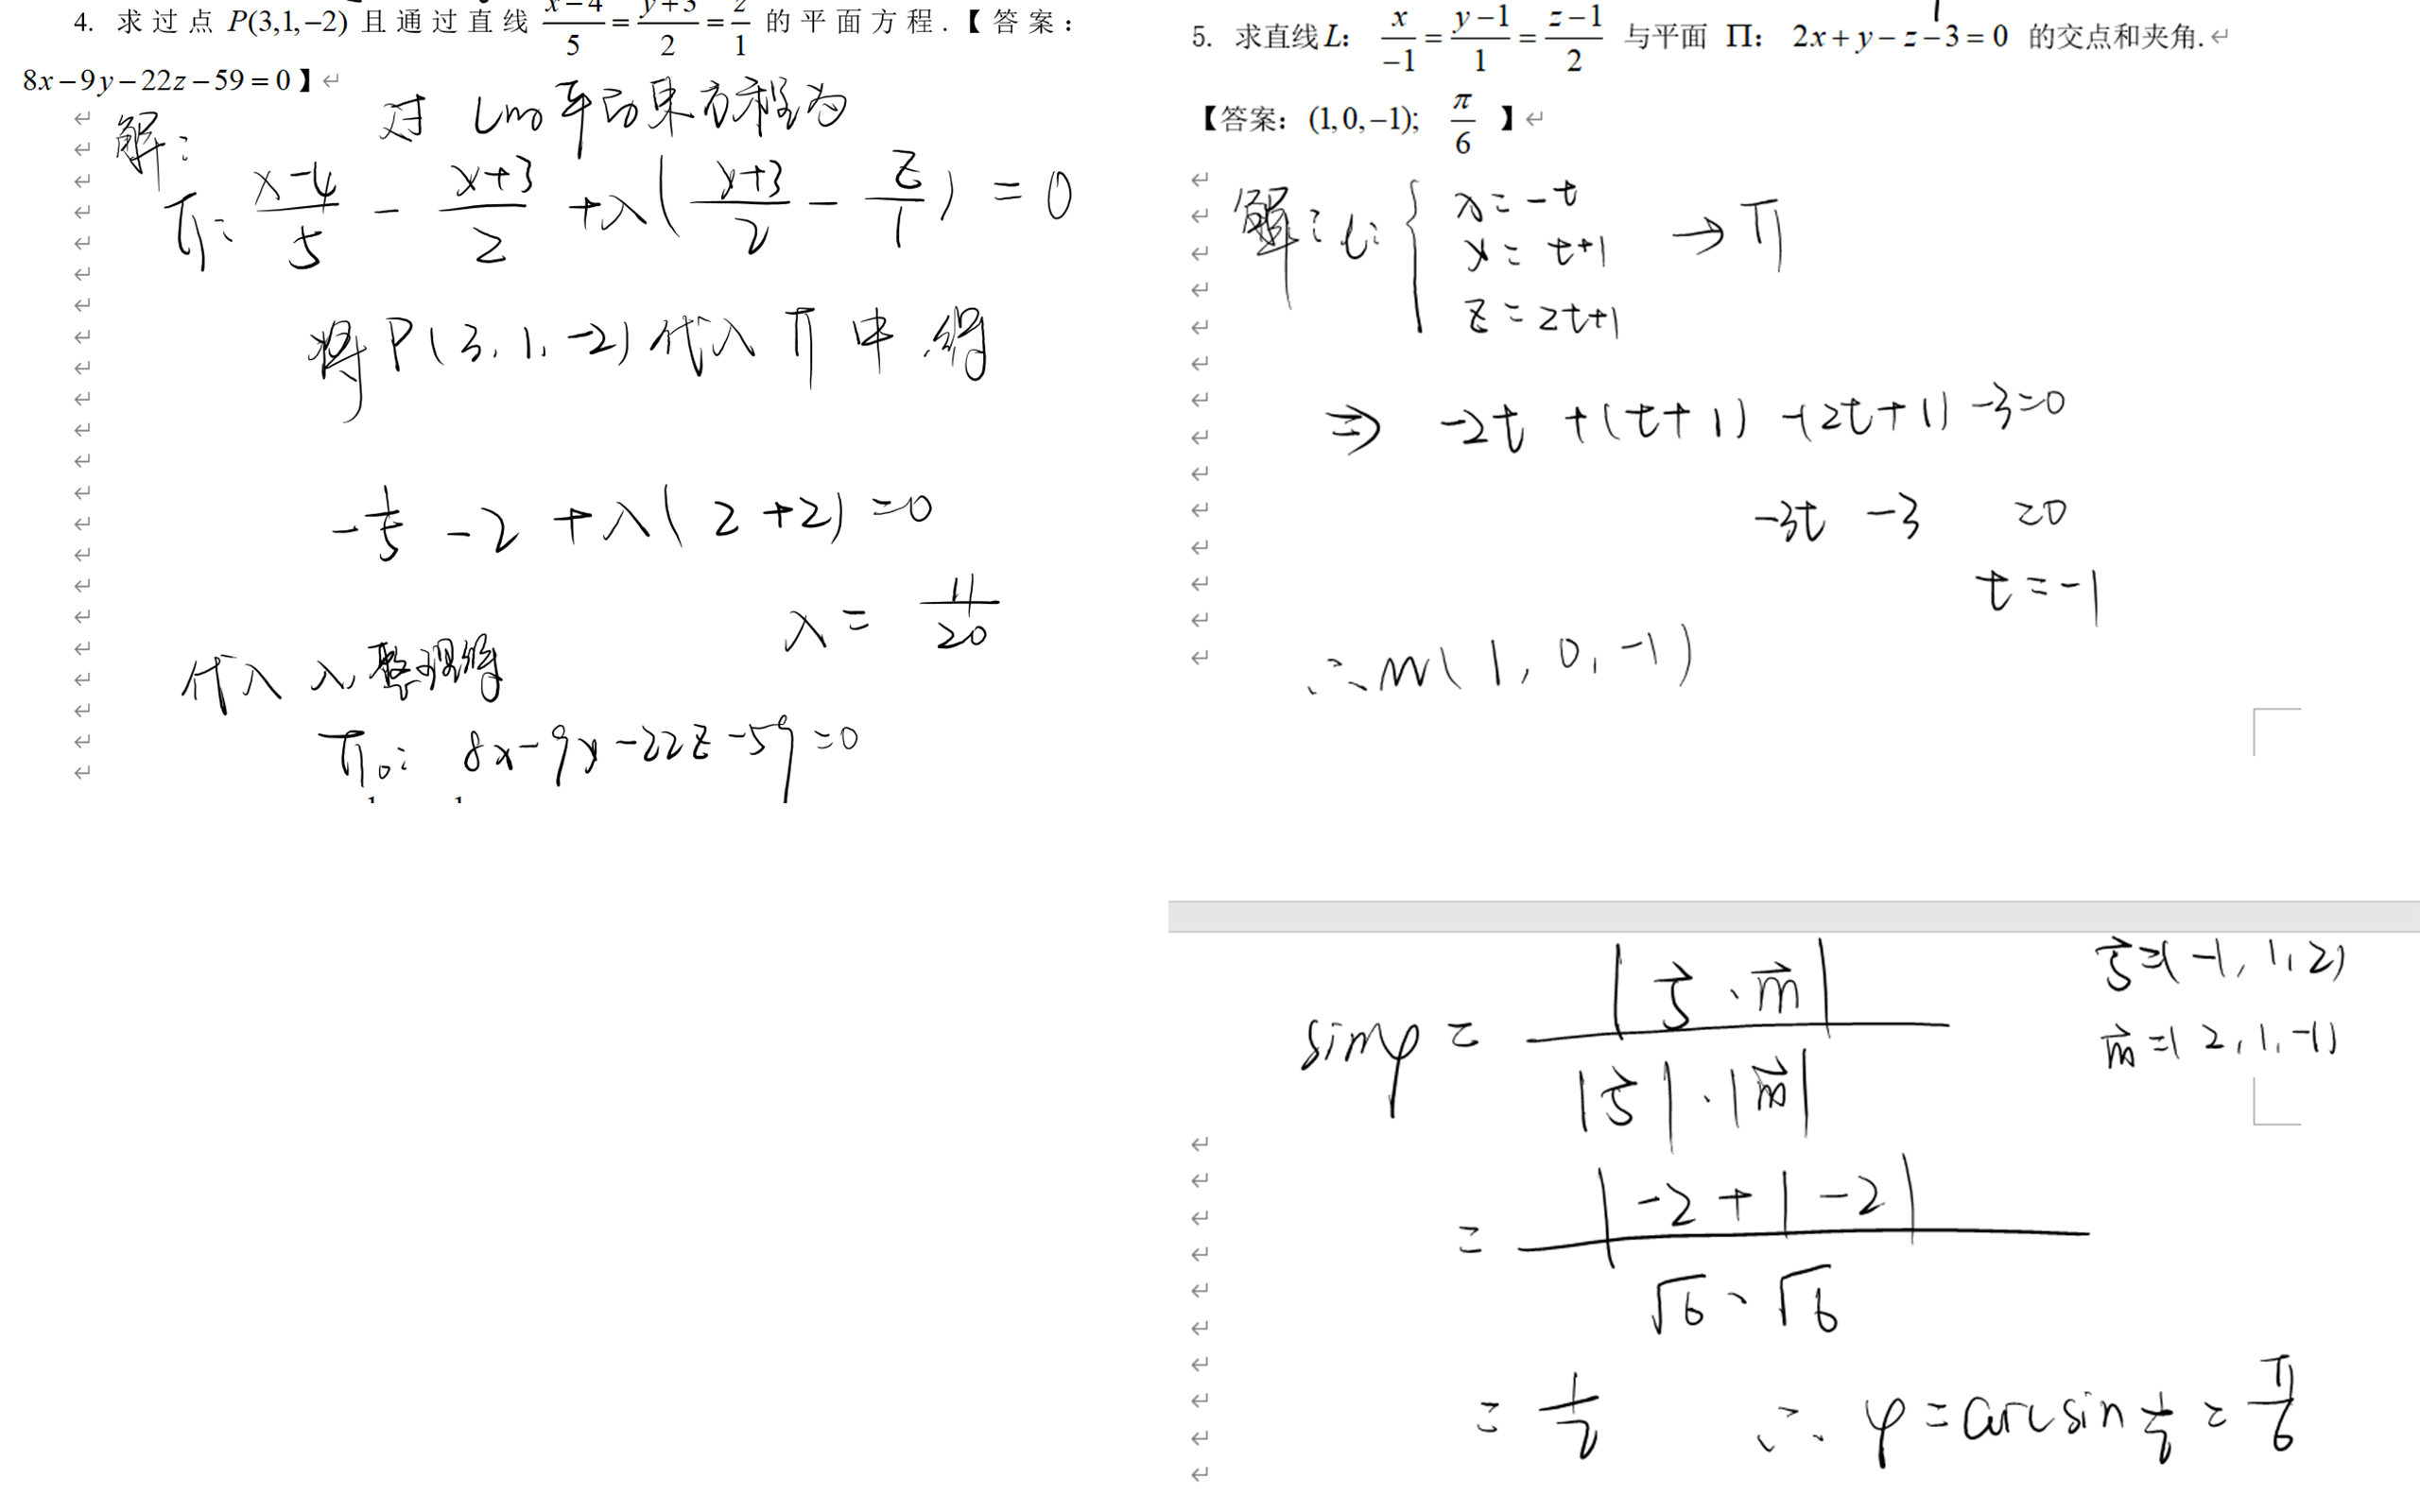 4. 求过点 P(3,1,−2) 且通过直线 (x−4)/5 = (y+3)/2 = z/1 的平面方程.【答案:
8x−9y−22z−59=0】
解:
对 Lm0平面束方程为
π: (x−4)/5 − (y+3)/2 + λ((y+3)/2 − z/1) = 0
将P(3,1,−2)代入 π 中 得
−1/5 −2 + λ(2+2) =0
λ = 11/20
代入 λ, 整理得
π0: 8x−9y−22z−59=0
5. 求直线L: x/−1 = (y−1)/1 = (z−1)/2 与平面 Π: 2x+y−z−3=0 的交点和夹角.
【答案: (1,0,−1); π/6 】
解: L: { x=−t
y= t+1 → π
z=2t+1
⇒ −2t +(t+1) −(2t+1) −3=0
−3t −3 =0
t=−1
∴ M(1, 0, −1)
s⃗=(−1,1,2)
sinφ = |s⃗·n⃗| / |s⃗|·|n⃗|
n⃗=(2,1,−1)
= |−2+1−2| / √6·√6
= 1/2 ∴ φ=arcsin 1/2 = π/6